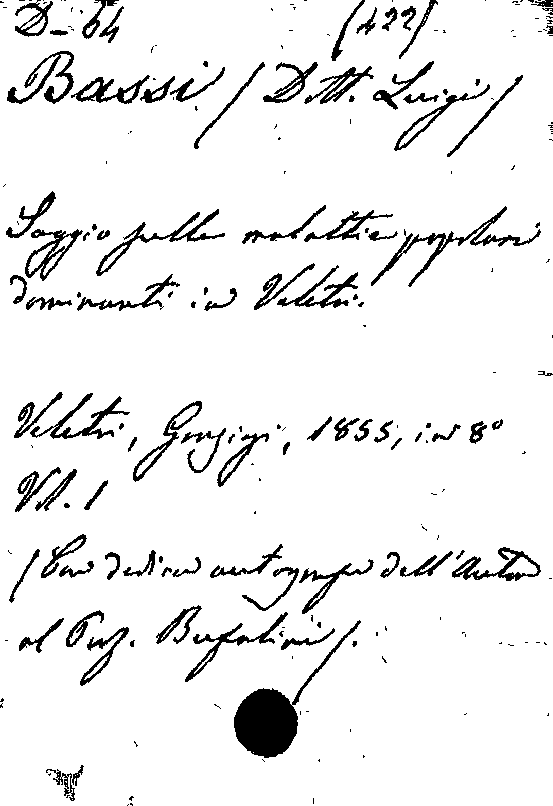 D-64 (422)
Bassi / Dott. Luigi /
Saggio sulle malattie popolari
dominanti in Veletri.
Veletri, 1855, in 8°
Vol. 1
/ Con dedica autografa dell'Autore
al Prof. Bufalini /.